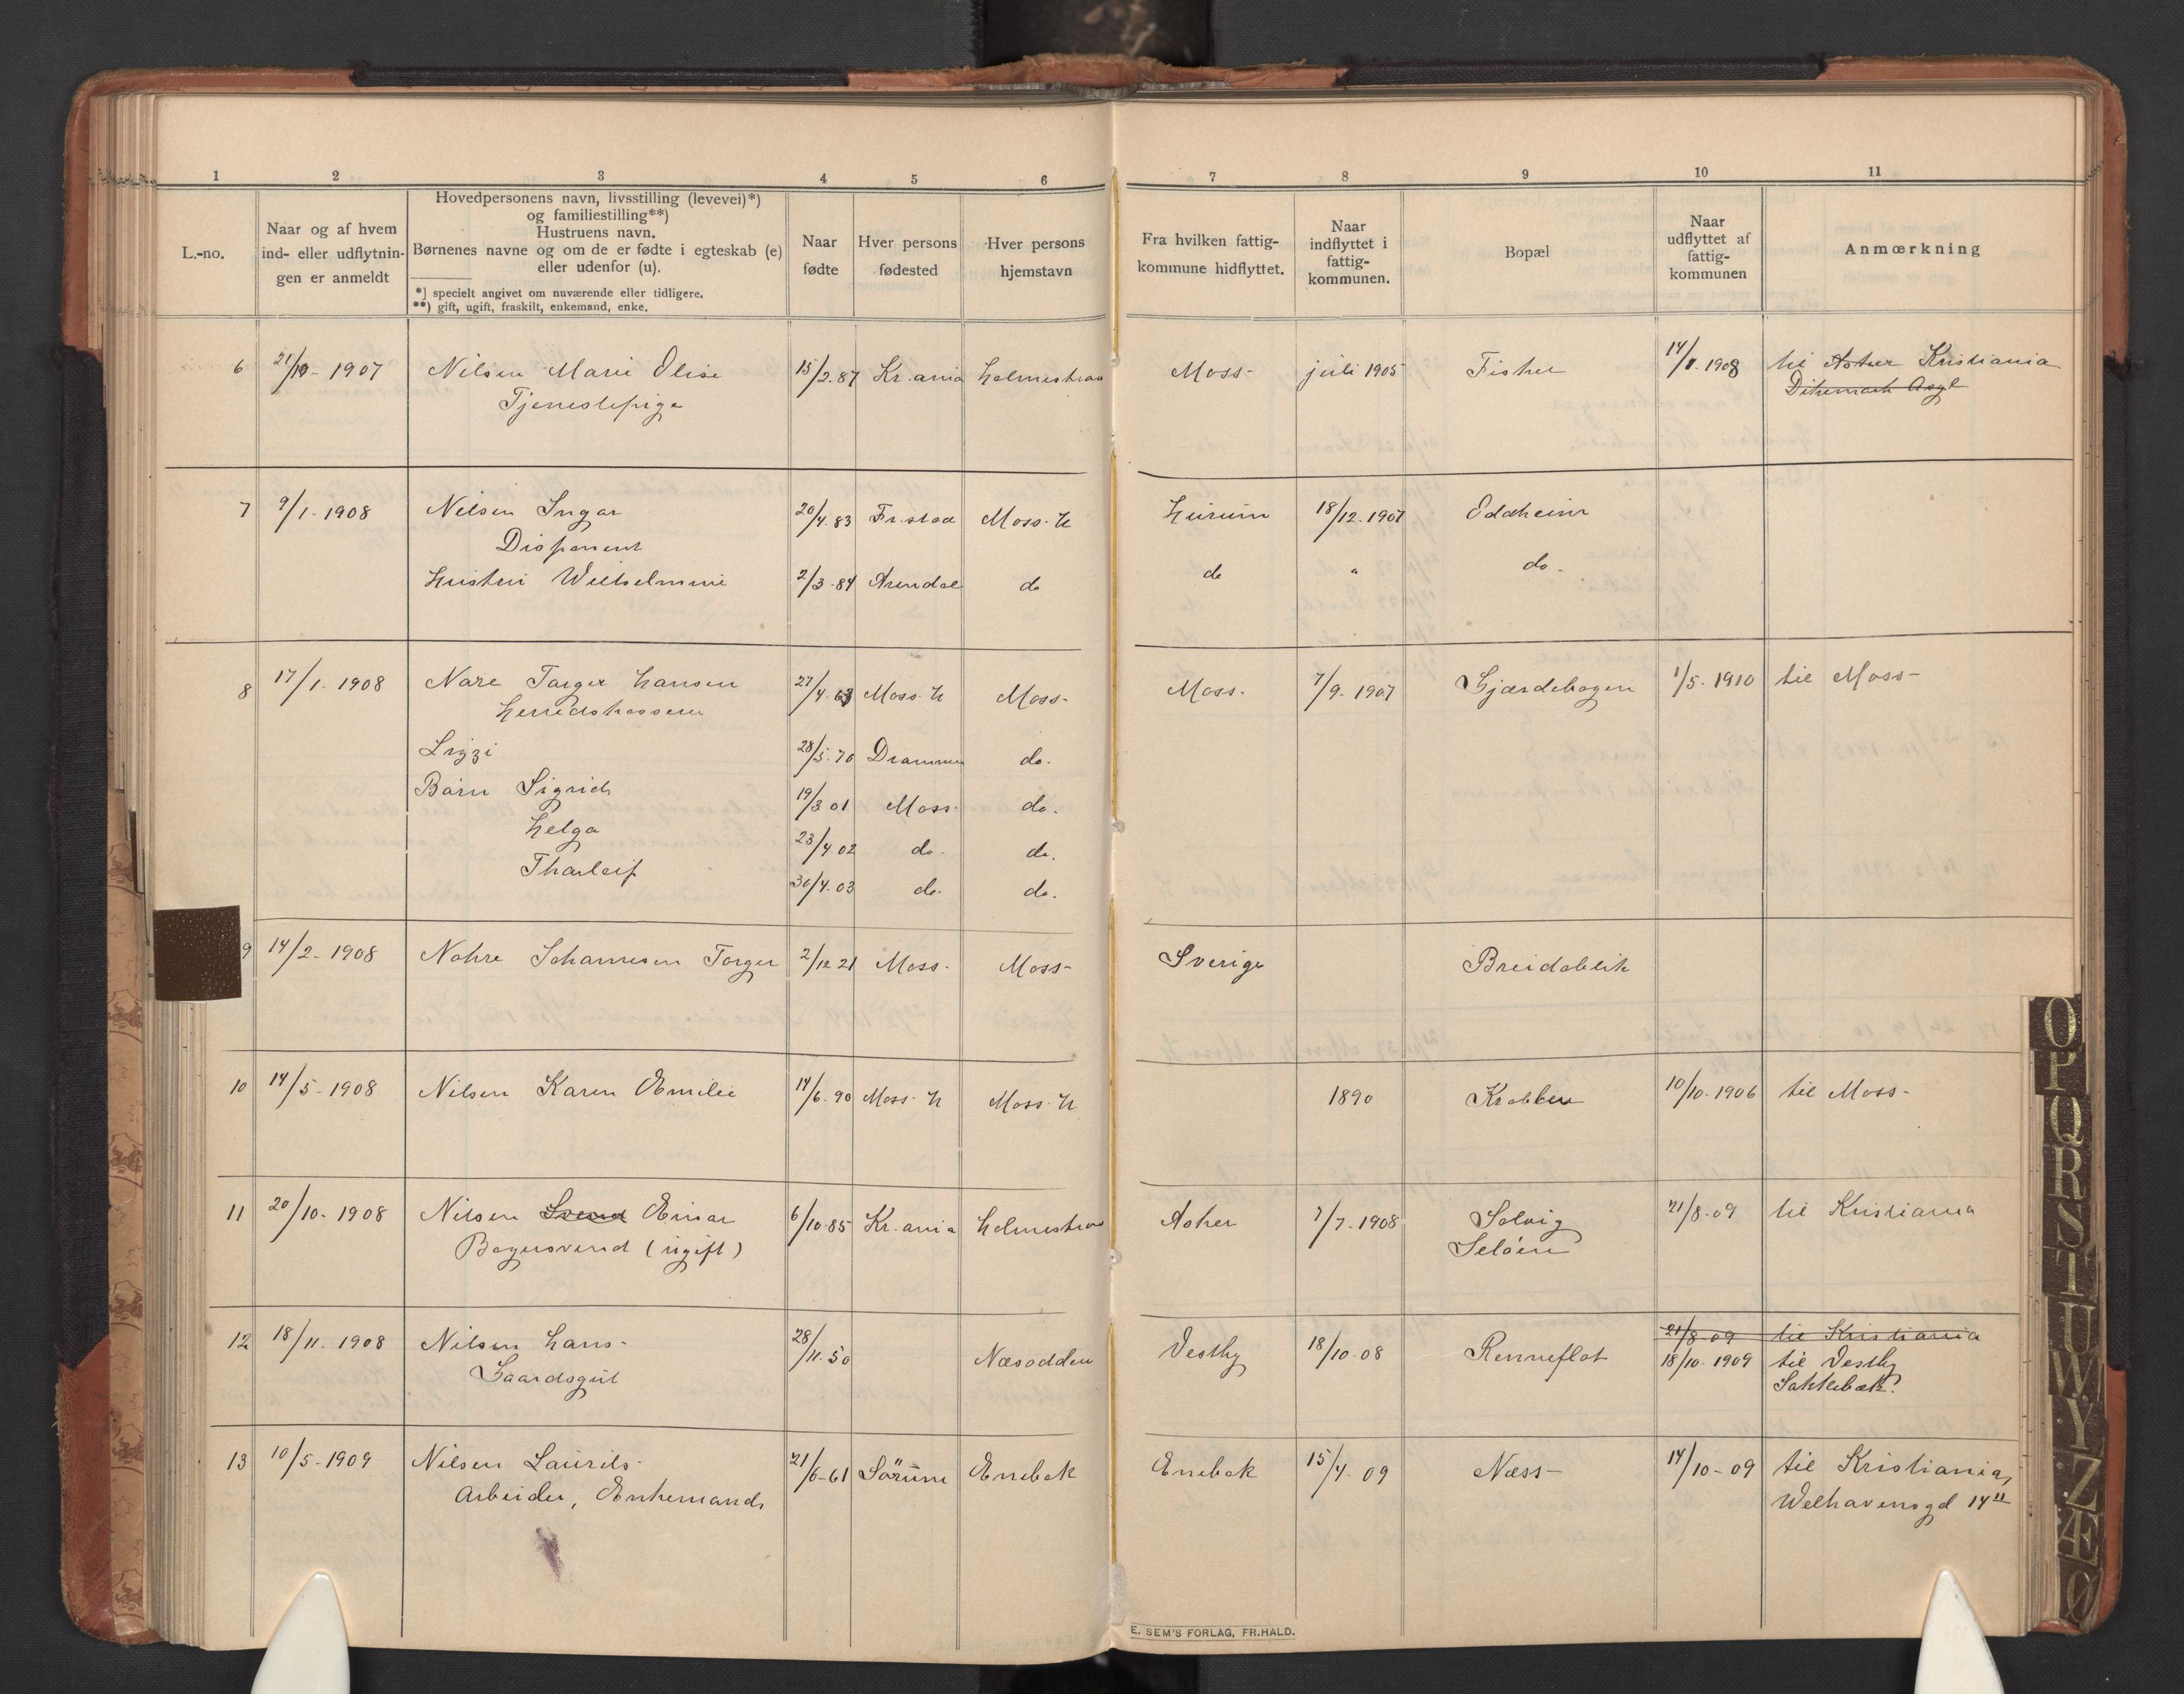 1 2 3 4 5 6 7 8 9 10 11
L.-no.
Naar og af hvem
ind- eller udflytnin-
gen er anmeldt
Hovedpersonens navn, livsstilling (levevei)*)
og familiestilling**)
Hustruens navn.
Børnenes navne og om de er fødte i egteskab (e)
eller udenfor (u).
*) specielt angivet om nuværende eller tidligere.
**) gift, ugift, fraskilt, enkemand, enke.
Naar
fødte
Hver persons
fødested
Hver persons
hjemstavn
Fra hvilken fattig-
kommune hidflyttet.
Naar
indflyttet i
fattig-
kommunen.
Bopæl
Naar
udflyttet af
fattig-
kommunen
Anmærkning
6 21/10-1907 Nilsen Marie Olise 15/2-87 Kr.ania Holmestran Moss- juli 1905 Fisker 14/1 1908 til Asker Kristiania
Tjenestepige Dikemark Asyl
7 9/1-1908 Nilsen Ingar 20/4.83 Fr.stad Moss. H Hurum 18/12-1907 Eddheim
Disponent
Hustru Wilhelmine 2/3-84 Arendal do do " do-
8 17/1-1908 Nare Torger Hansen 27/4.63 Moss. H Moss- Moss- 7/9-1907 Gjærdebogen 1/5-1910 til Moss-
Herredskasserer
Lizzi 28/5-70 Drammen do.
Børn Sigrid 19/3 01 Moss. do.
Helga 23/4.02 do- do.
Thorleif 30/4-03 do. do.
9 14/2-1908 Nohre Johannesen Torger 2/12 21 Moss- Moss- Sverige Breidablik
10 14/5-1908 Nilsen Karen Emilie 14/6-90 Moss. H Moss. H 1890 Krabben 10/10-1906 til Moss-
11 20/10-1908 Nilsen Svend Einar 6/10-85 Kr.ania Holmestran Asker 7/7-1908 Solvig 21/8-09 til Kristiania
Bagersvend (ugift) Seløien
12 18/11-1908 Nilsen Hans- 28/11-50 Næsodden Vestby 18/10-08 Renneflot 21/8-09 til Kristiania
Gaardsgut 18/10-1909 til Vestby
Sakkebæk.
13 10/5-1909 Nilsen Laurits- 21/6-61 Sörum Enebak Enebak 15/4-09 Næss- 14/10-09 til Kristiania,
Arbeider, Enkemand, Welhavensgd 14 II
E. SEM'S FORLAG, FR.HALD.
O
P
Q
R
S
T
U
W
Y
Z
Æ
Ø